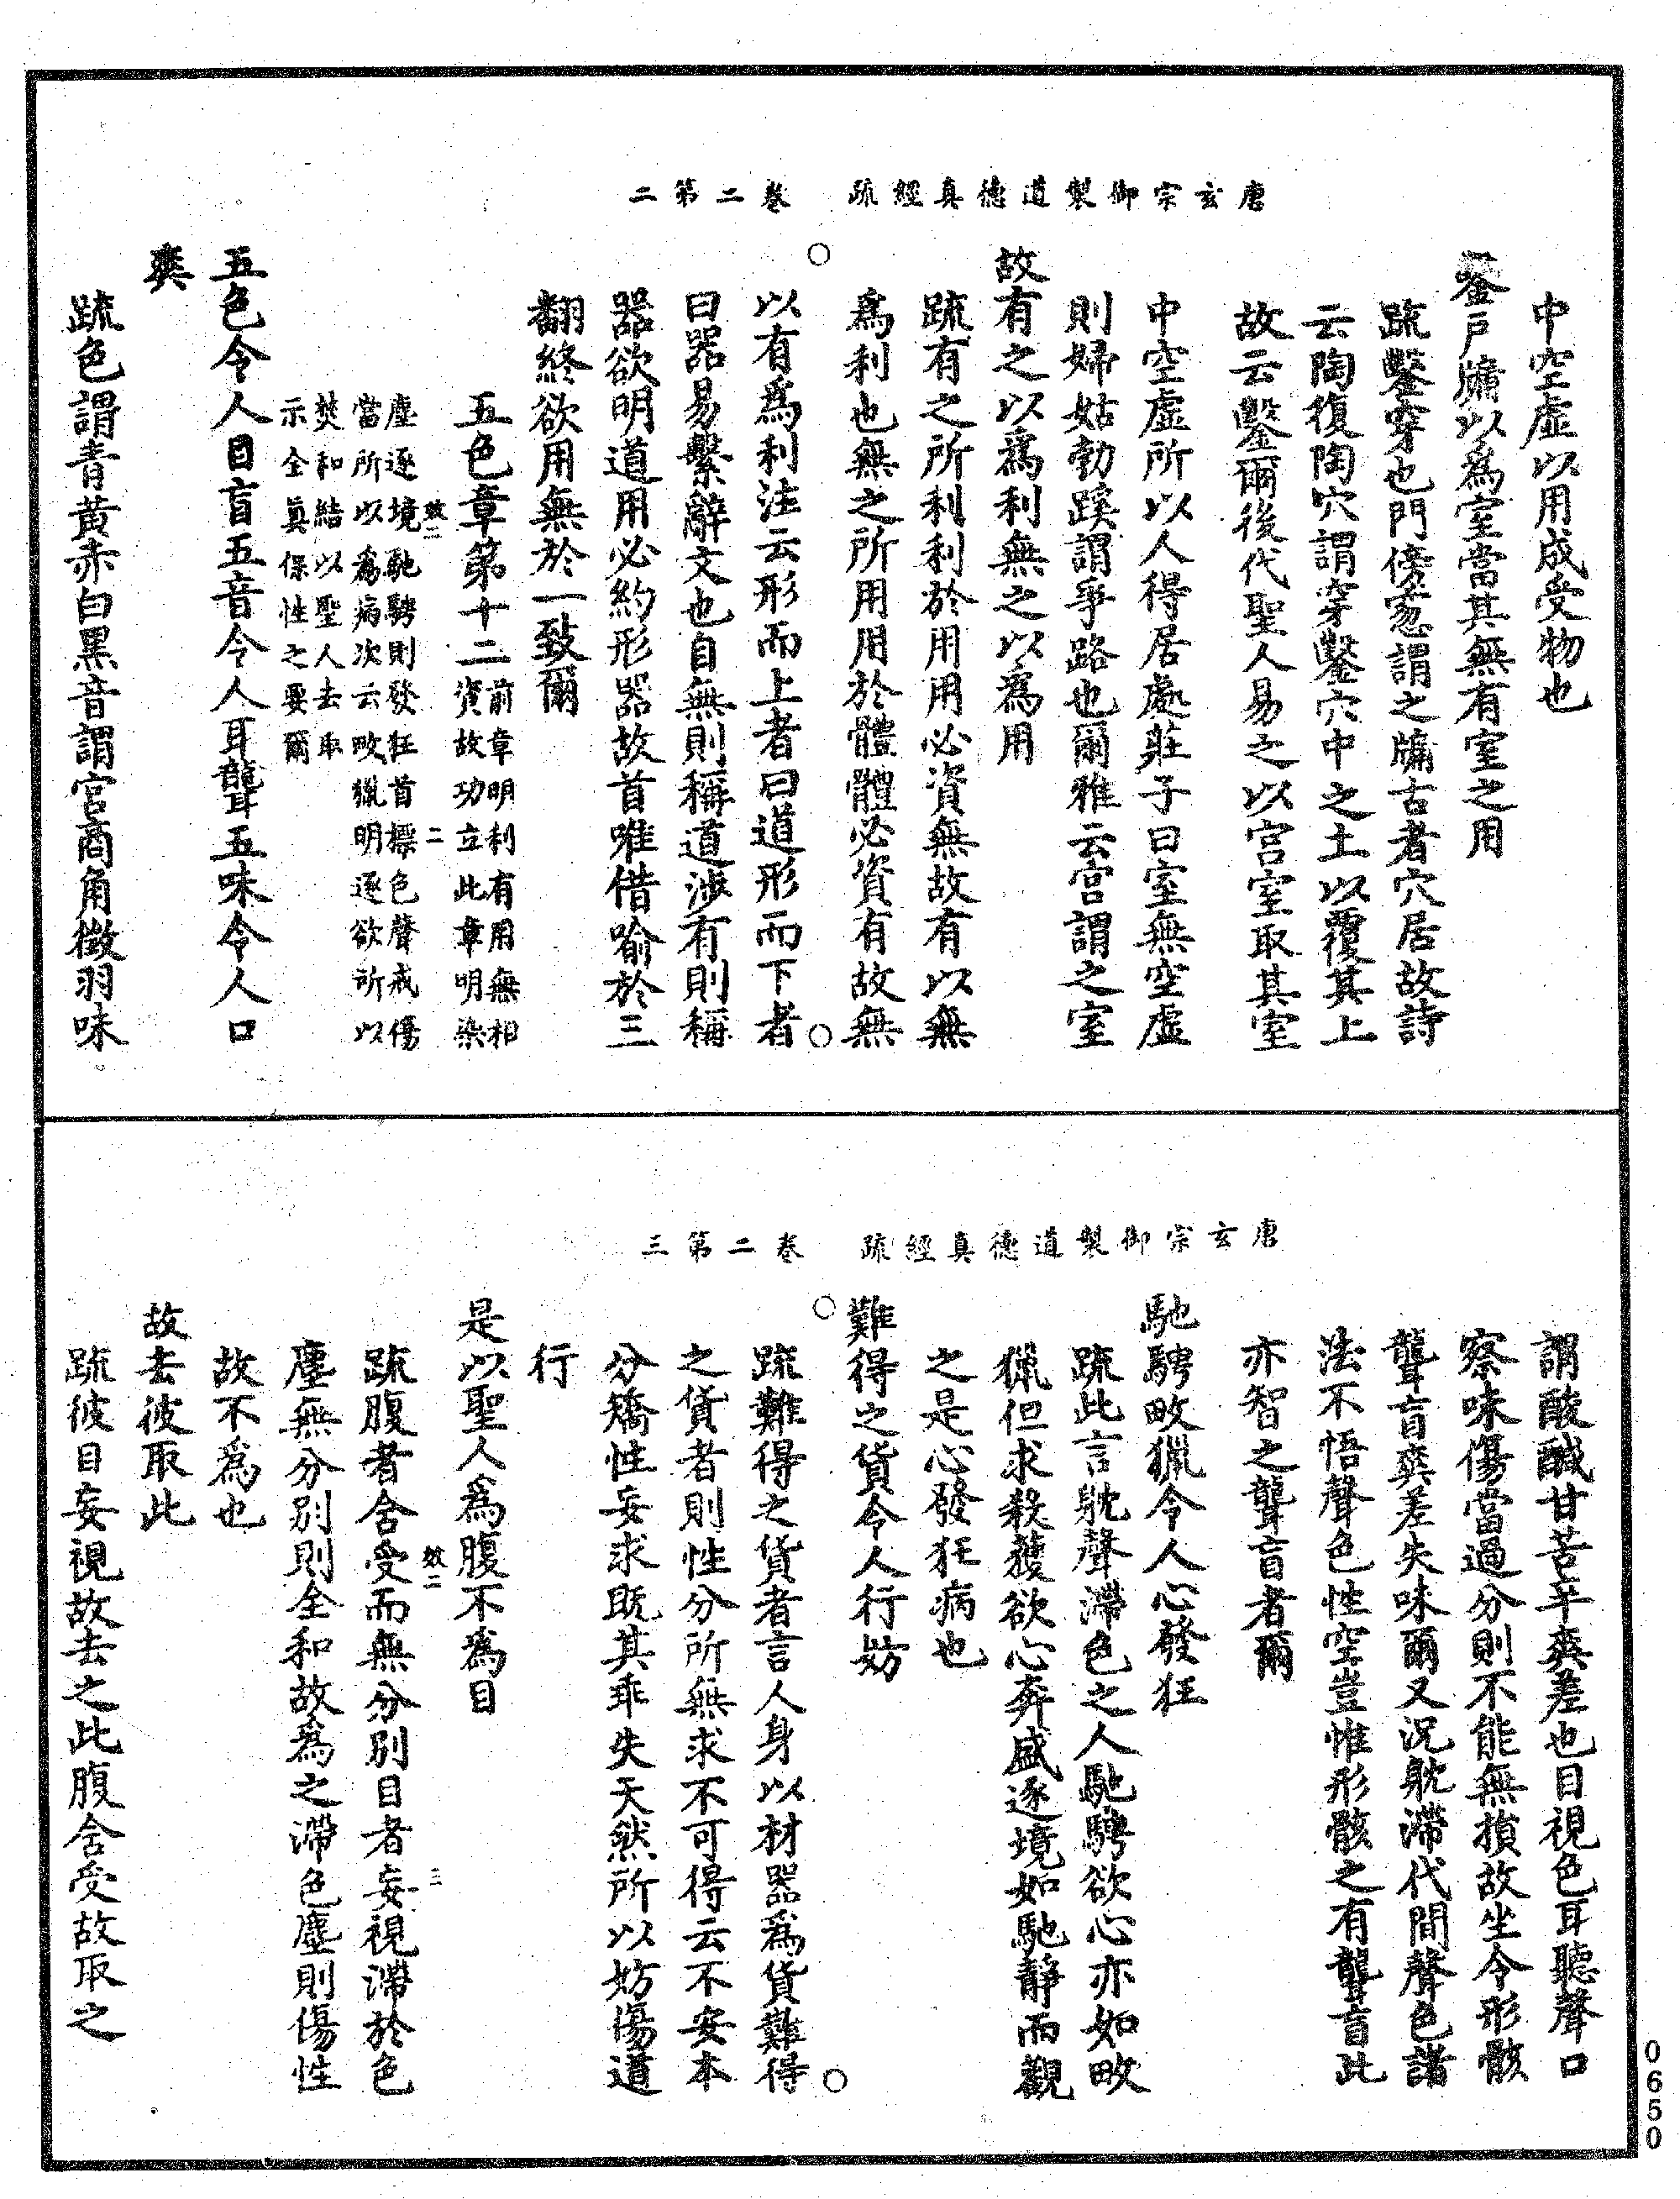 唐玄宗御製道德真經疏　卷二第二
中空虛以用成受物也
鑿戶牖以為室當其無有室之用
疏鑿穿也門傍窓謂之牖古者穴居故詩
云陶復陶穴謂穿鑿穴中之土以覆其上
故云鑿爾後代聖人易之以宮室取其室
中空虛所以人得居處莊子曰室無空虛
則婦姑勃蹊謂爭路也爾雅云宮謂之室
故有之以為利無之以為用
疏有之所利利於用用必資無故有以無
為利也無之所用用於體體必資有故無
以有為利注云形而上者曰道形而下者
曰器易繫辭文也自無則稱道涉有則稱
器欲明道用必約形器故首唯借喻於三
翻終欲用無於一致爾
五色章第十二前章明利有用無相
資故功立此章明染
效二　二
塵逐境馳騁則發狂首摽色聲戒傷
當所以為病次云畋獵明逐欲所以
焚和結以聖人去取
示全真保性之要爾
五色令人目盲五音令人耳聾五味令人口
爽
疏色謂青黃赤白黑音謂宮商角徵羽味
唐玄宗御製道德真經疏　卷二第三
謂酸鹹甘苦辛爽差也目視色耳聽聲口
察味傷當過分則不能無損故坐令形骸
聾盲爽差失味爾又況躭滯代間聲色諸
法不悟聲色性空豈惟形骸之有聾盲此
亦智之聾盲者爾
馳騁畋獵令人心發狂
疏此言躭聲滯色之人馳騁欲心亦如畋
獵但求殺獲欲心奔盛逐境如馳靜而觀
之是心發狂病也
難得之貨令人行妨
疏難得之貨者言人身以材器為貨難得
之貨者則性分所無求不可得云不安本
分矯性妄求既其乖失天然所以妨傷道
行
是以聖人為腹不為目
效二　三
疏腹者含受而無分別目者妄視滯於色
塵無分別則全和故為之滯色塵則傷性
故不為也
故去彼取此
疏彼目妄視故去之此腹含受故取之
0650